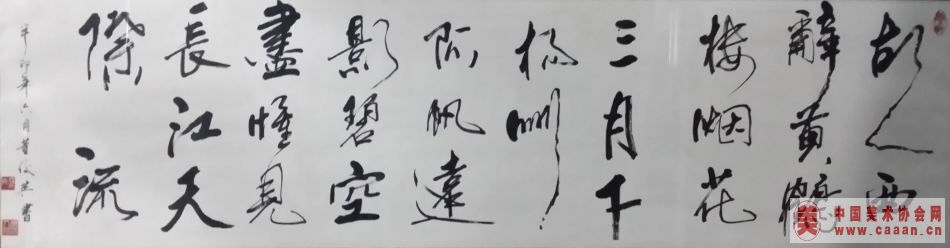 故人西
辭黄鶴
楼烟花
三月下
揚州
孤帆遠
影碧空
盡惟見
長江天
際流
辛卯年六月
書
中国美术协会网
www.caaan.cn